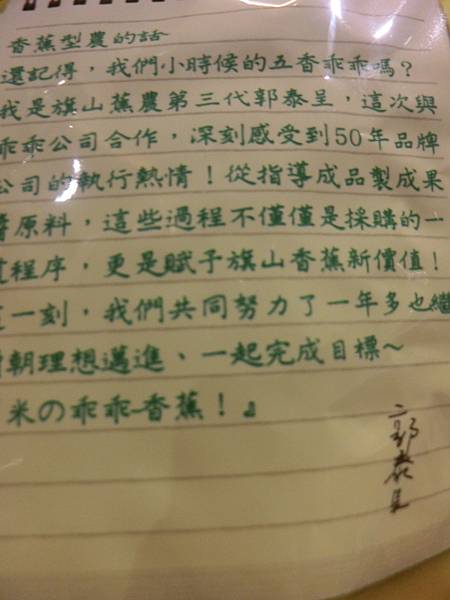 香蕉型農的話~
還記得，我們小時候的五香乖乖嗎？
我是旗山蕉農第三代郭泰呈，這次與
乖乖公司合作，深刻感受到50年品牌
公司的執行熱情！從指導成品製成果
醬原料，這些過程不僅僅是採購的一
程序，更是賦予旗山香蕉新價值！
一刻，我們共同努力了一年多也繼
朝理想邁進、一起完成目標～
米の乖乖-香蕉！』
郭泰呈